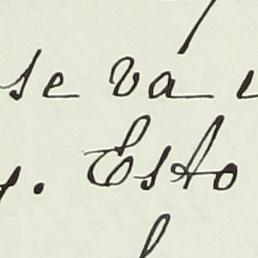 se vá
. Esto